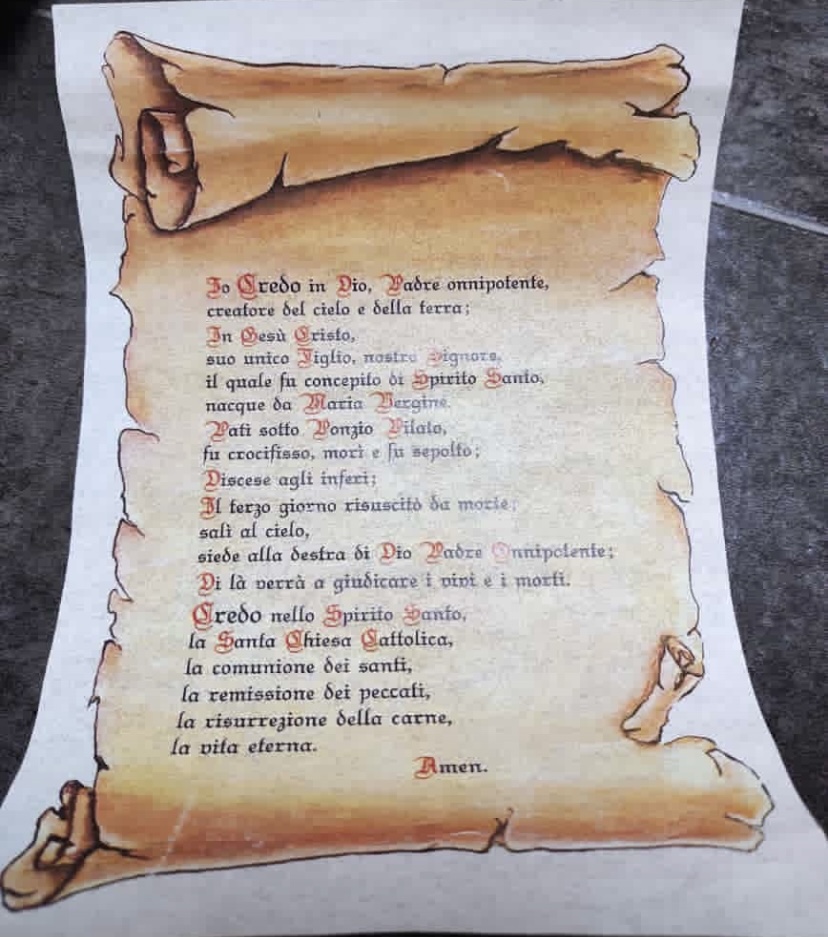 Io Credo in Dio, Padre onnipotente,
creatore del cielo e della terra;
In Gesù Cristo,
suo unico Figlio, nostro Signore,
il quale fu concepito di Spirito Santo,
nacque da Maria Vergine.
Patì sotto Ponzio Pilato,
fu crocifisso, morì e fu sepolto;
Discese agli inferi;
Il terzo giorno risuscitò da morte;
salì al cielo,
siede alla destra di Dio Padre Onnipotente;
Di là verrà a giudicare i vivi e i morti.
Credo nello Spirito Santo,
la Santa Chiesa Cattolica,
la comunione dei santi,
la remissione dei peccati,
la risurrezione della carne,
la vita eterna.
Amen.